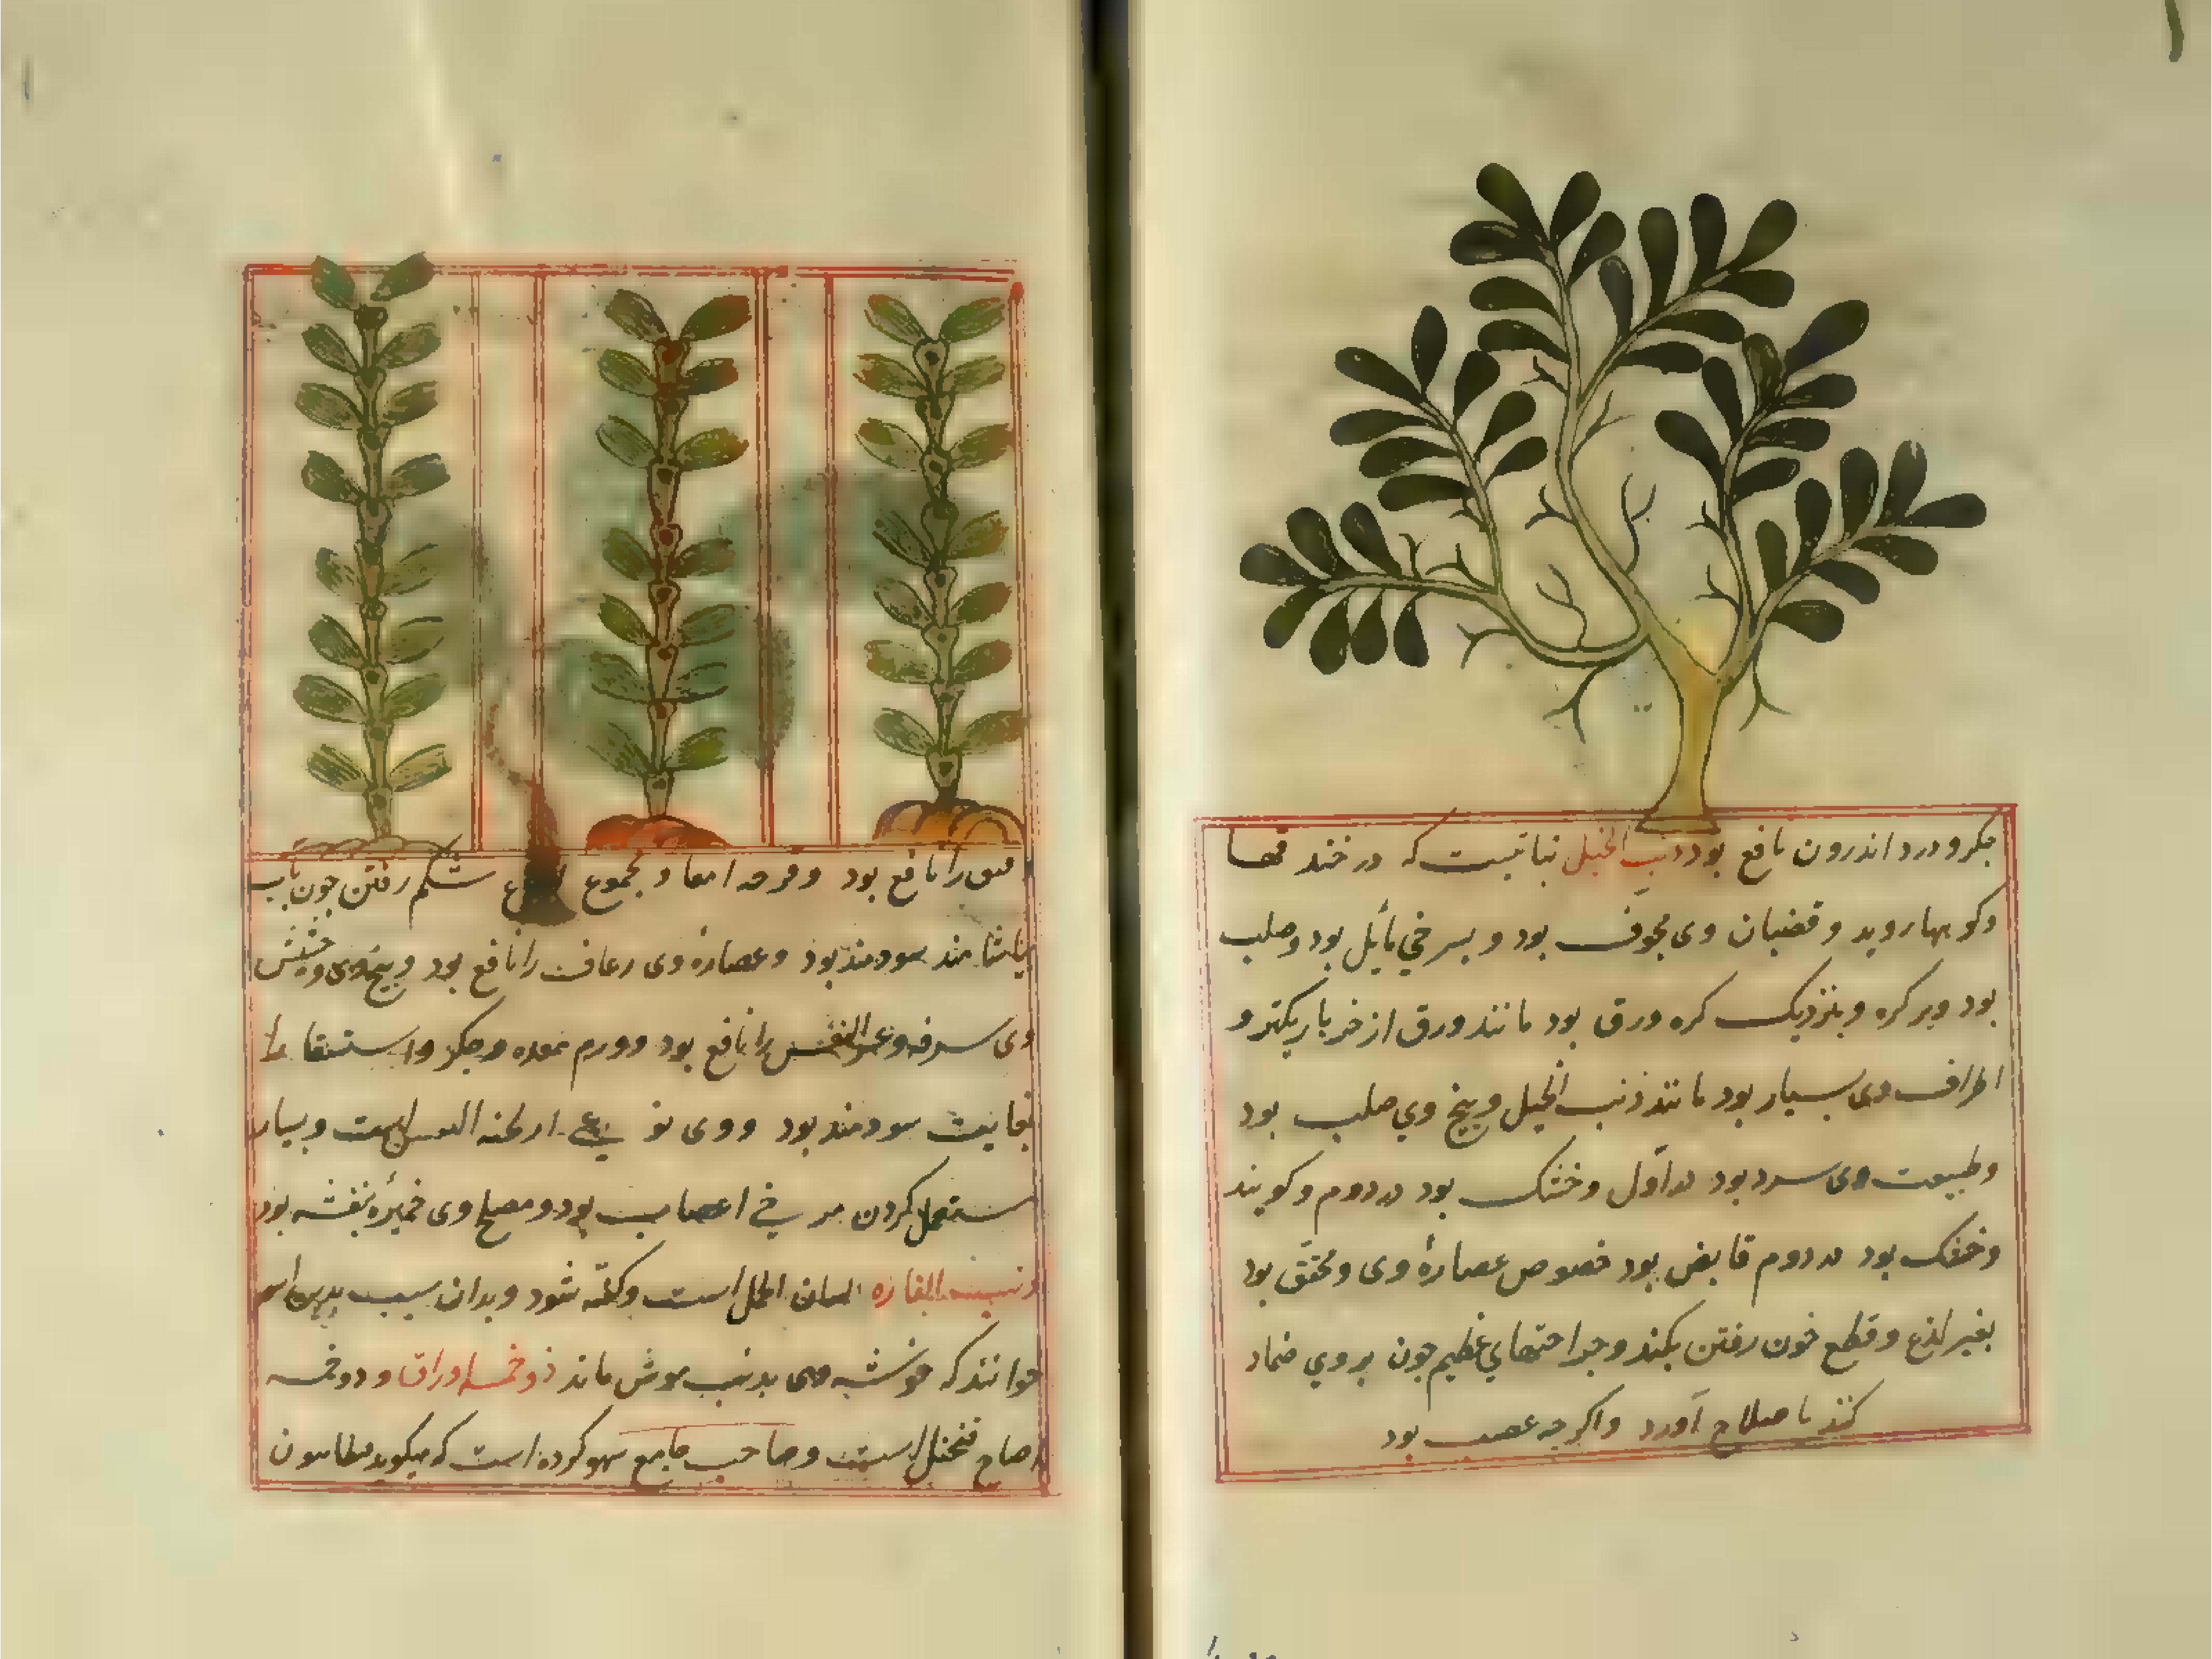 جکر و درد اندرون نافع بود ذنب الخیل نباتیست که در خندقها
و کوهها روید و قضبان وی مجوف بود و بسرخی مایل بود و صلب
بود و بر کره و بنزدیک کره ورق بود مانند ورق اذخر باریکتر و
اطراف وی بسیار بود مانند ذنب الخیل و بیخ وی صلب بود
و طبیعت وی سرد بود در اول و خشک بود در دوم و کویند
و خشک بود در دوم قابض بود خصوص عصارۀ وی و مجفف بود
بغیر لذع و قطع خون رفتن بکند و جراحتهای عظیم چون بر وی ضماد
کنند باصلاح آورد و اکرچه عصب بود
فتق را نافع بود و قرحه امعا و مجموع شکم رفتن چون بآب
بیاشامند سودمند بود و عصارۀ وی رعاف را نافع بود و بیخ وی و حشیش
وی سرفه و عسر النفس را نافع بود و ورم معده و جکر و استسقا را
بغایت سودمند بود و وی نوعی از لحیة التیس است و بسیار
مستعمل کردن مرخی اعصاب بود و مصلح وی خمیرۀ بنفشه بود
ذنب الفاره لسان الحمل است و کفته شود و بدان سبب بدین اسم
خوانند که خوشه وی بدنب موش ماند ذو خمسة اوراق و ذو خمسه
اصابع فنجنکشت است و صاحب جامع سهو کرده است که میکوید